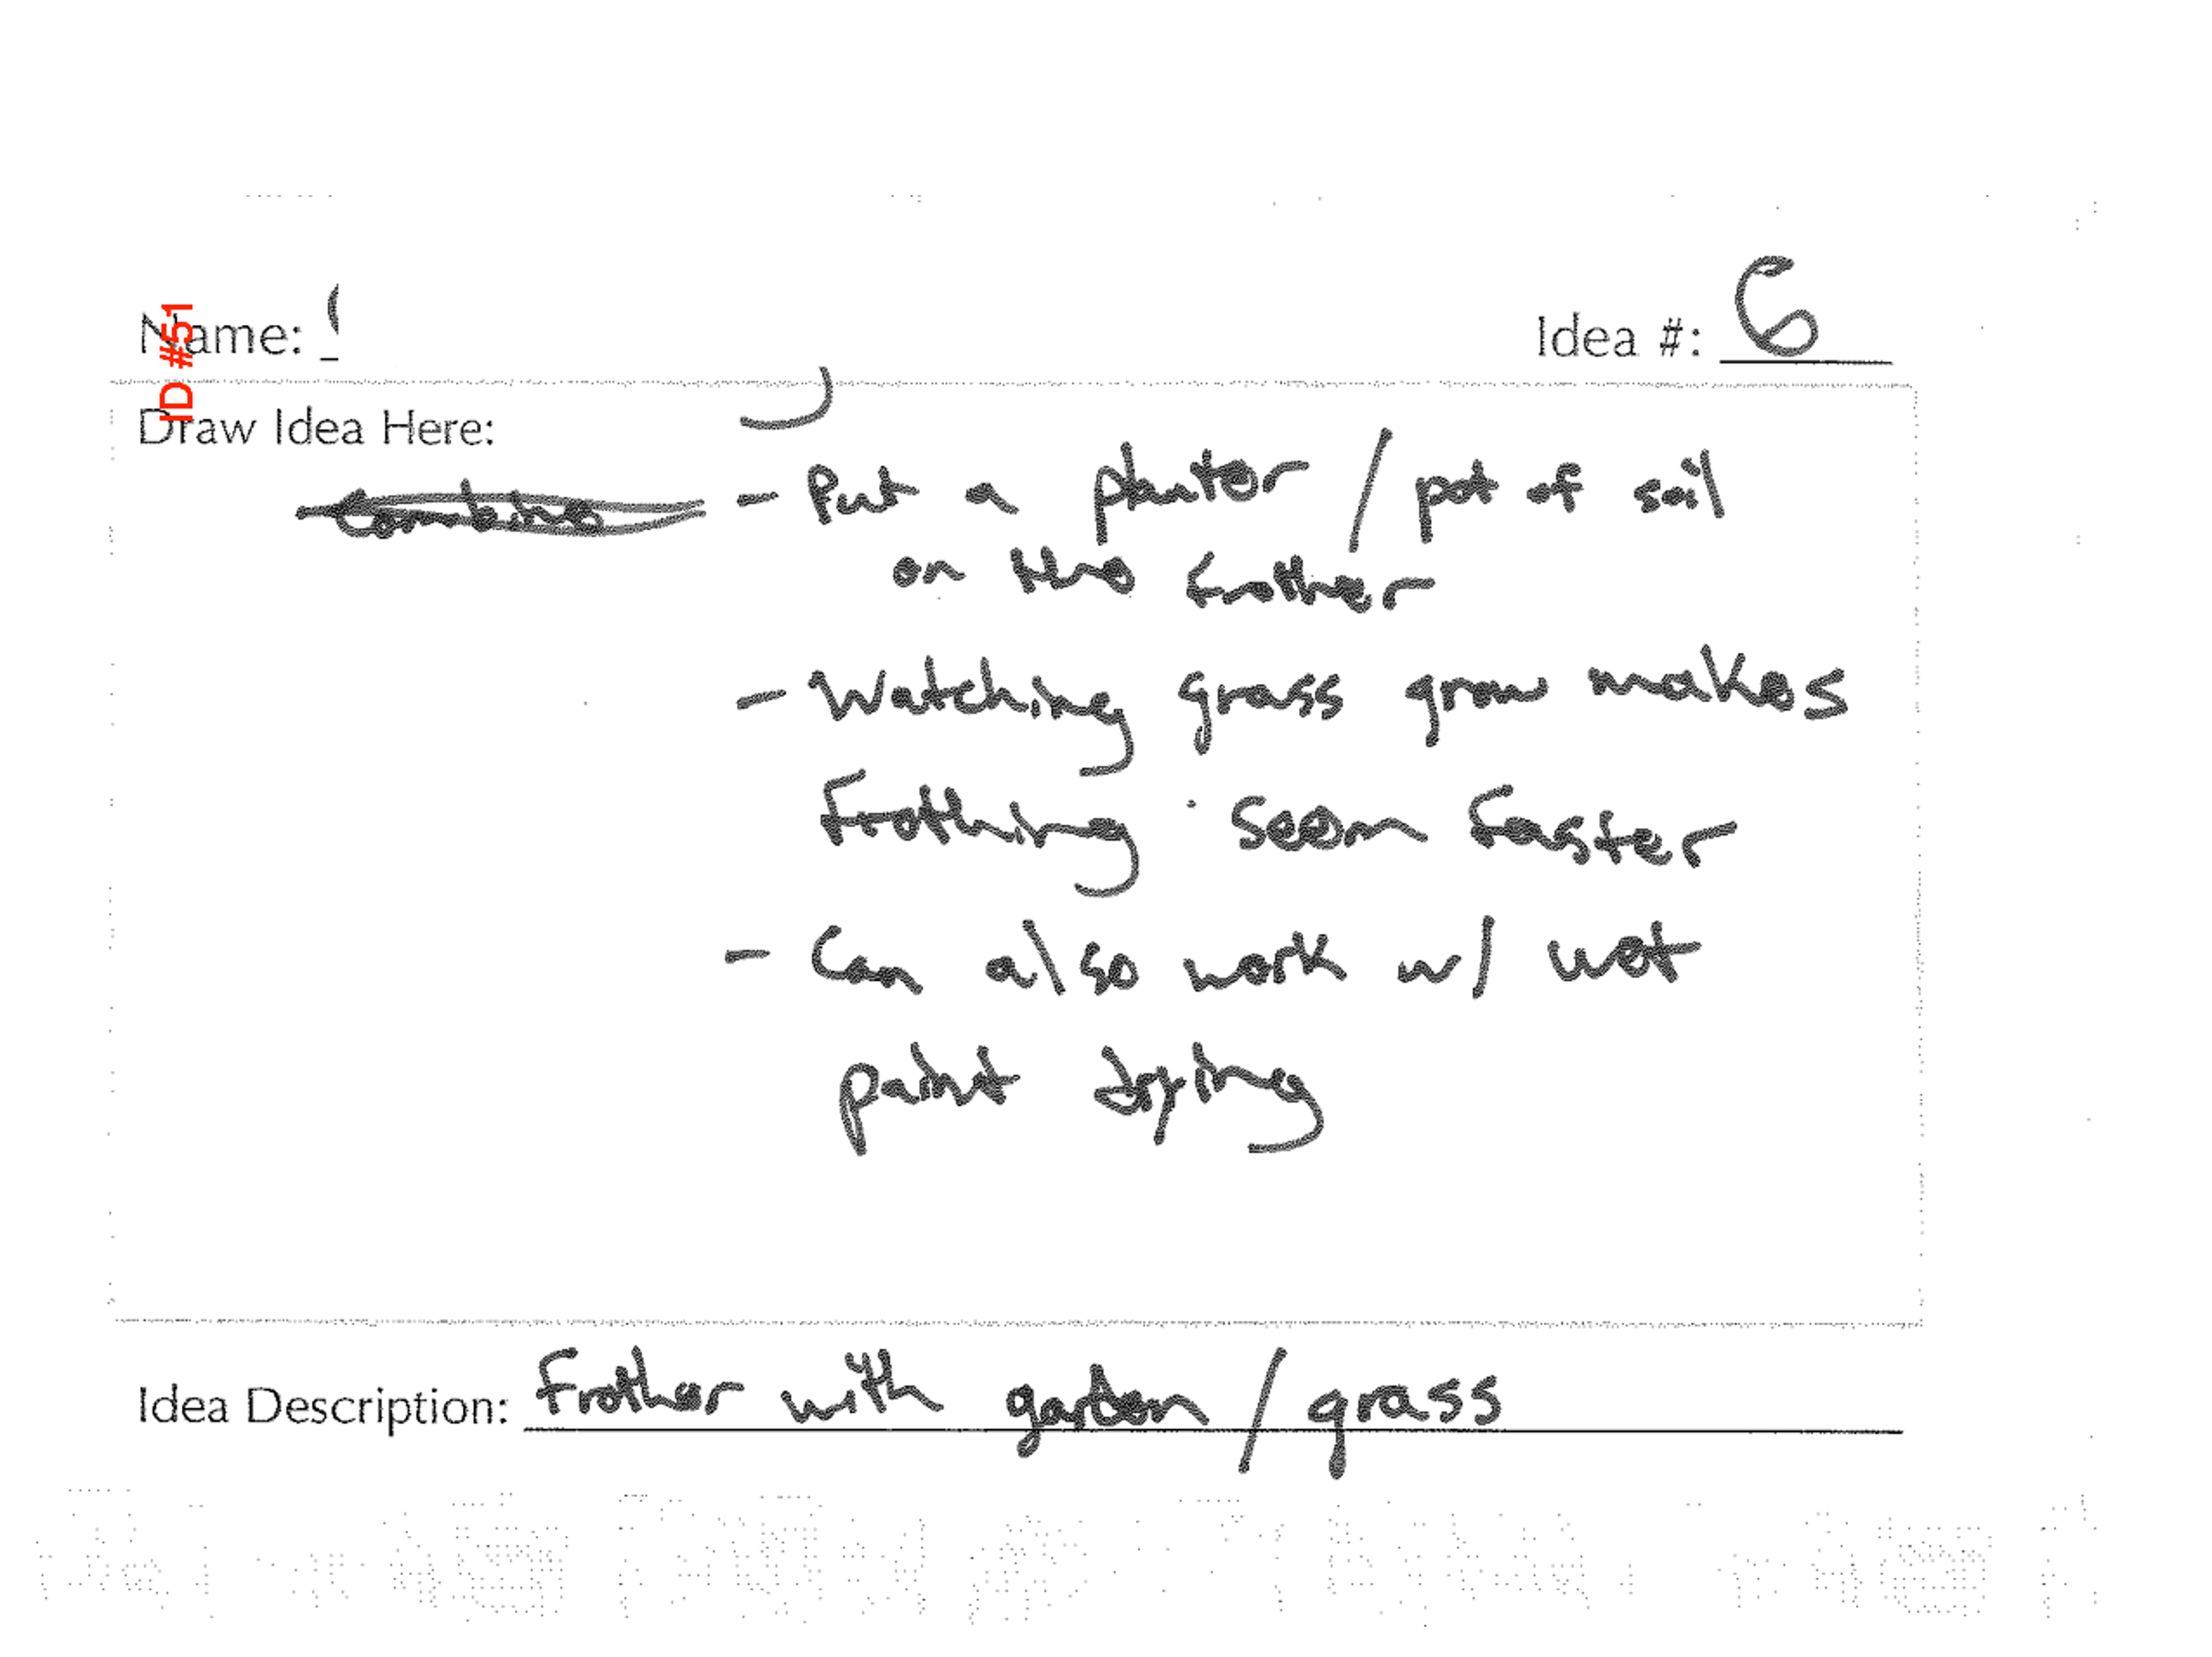 ID #51
Name:
Idea #: 6
Draw Idea Here:
- Put a planter / pot of soil
on the frother
- Watching grass grow makes
Frothing seem faster
- Can also work w/ wet
paint drying
Idea Description: Frother with garden / grass